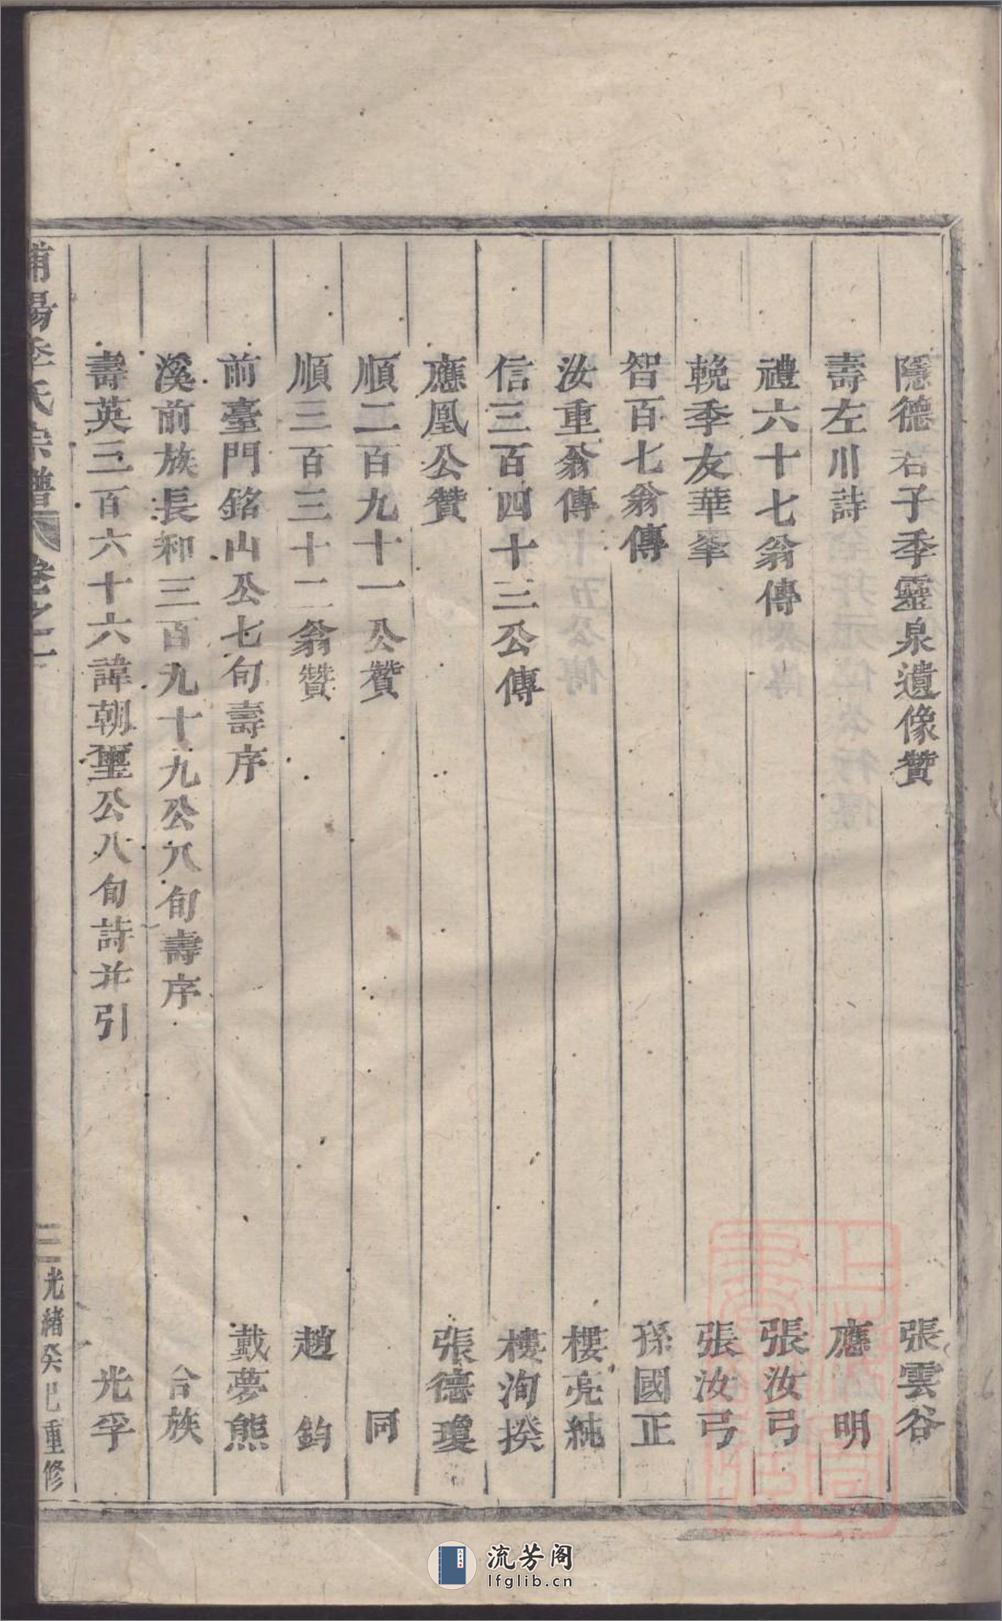 隱德君子季靈泉遺像贊 張雲谷
壽左川詩 應明
禮六十七翁傳 張汝弓
輓季友華峯 張汝弓
智百七翁傳 孫國正
汝重翁傳 樓亮純
信三百四十三公傳 樓洵揆
應凰公贊 張德瓊
順二百九十一公贊 同
順三百三十二翁贊 趙鈞
前臺門銘山公七旬壽序 戴夢熊
溪前族長和三百九十九公八旬壽序 合族
壽英三百六十六諱朝璽公八旬詩并引 光孚
浦陽季氏宗譜 卷之一 三 光緒癸巳重修
流芳阁
lfglib.cn